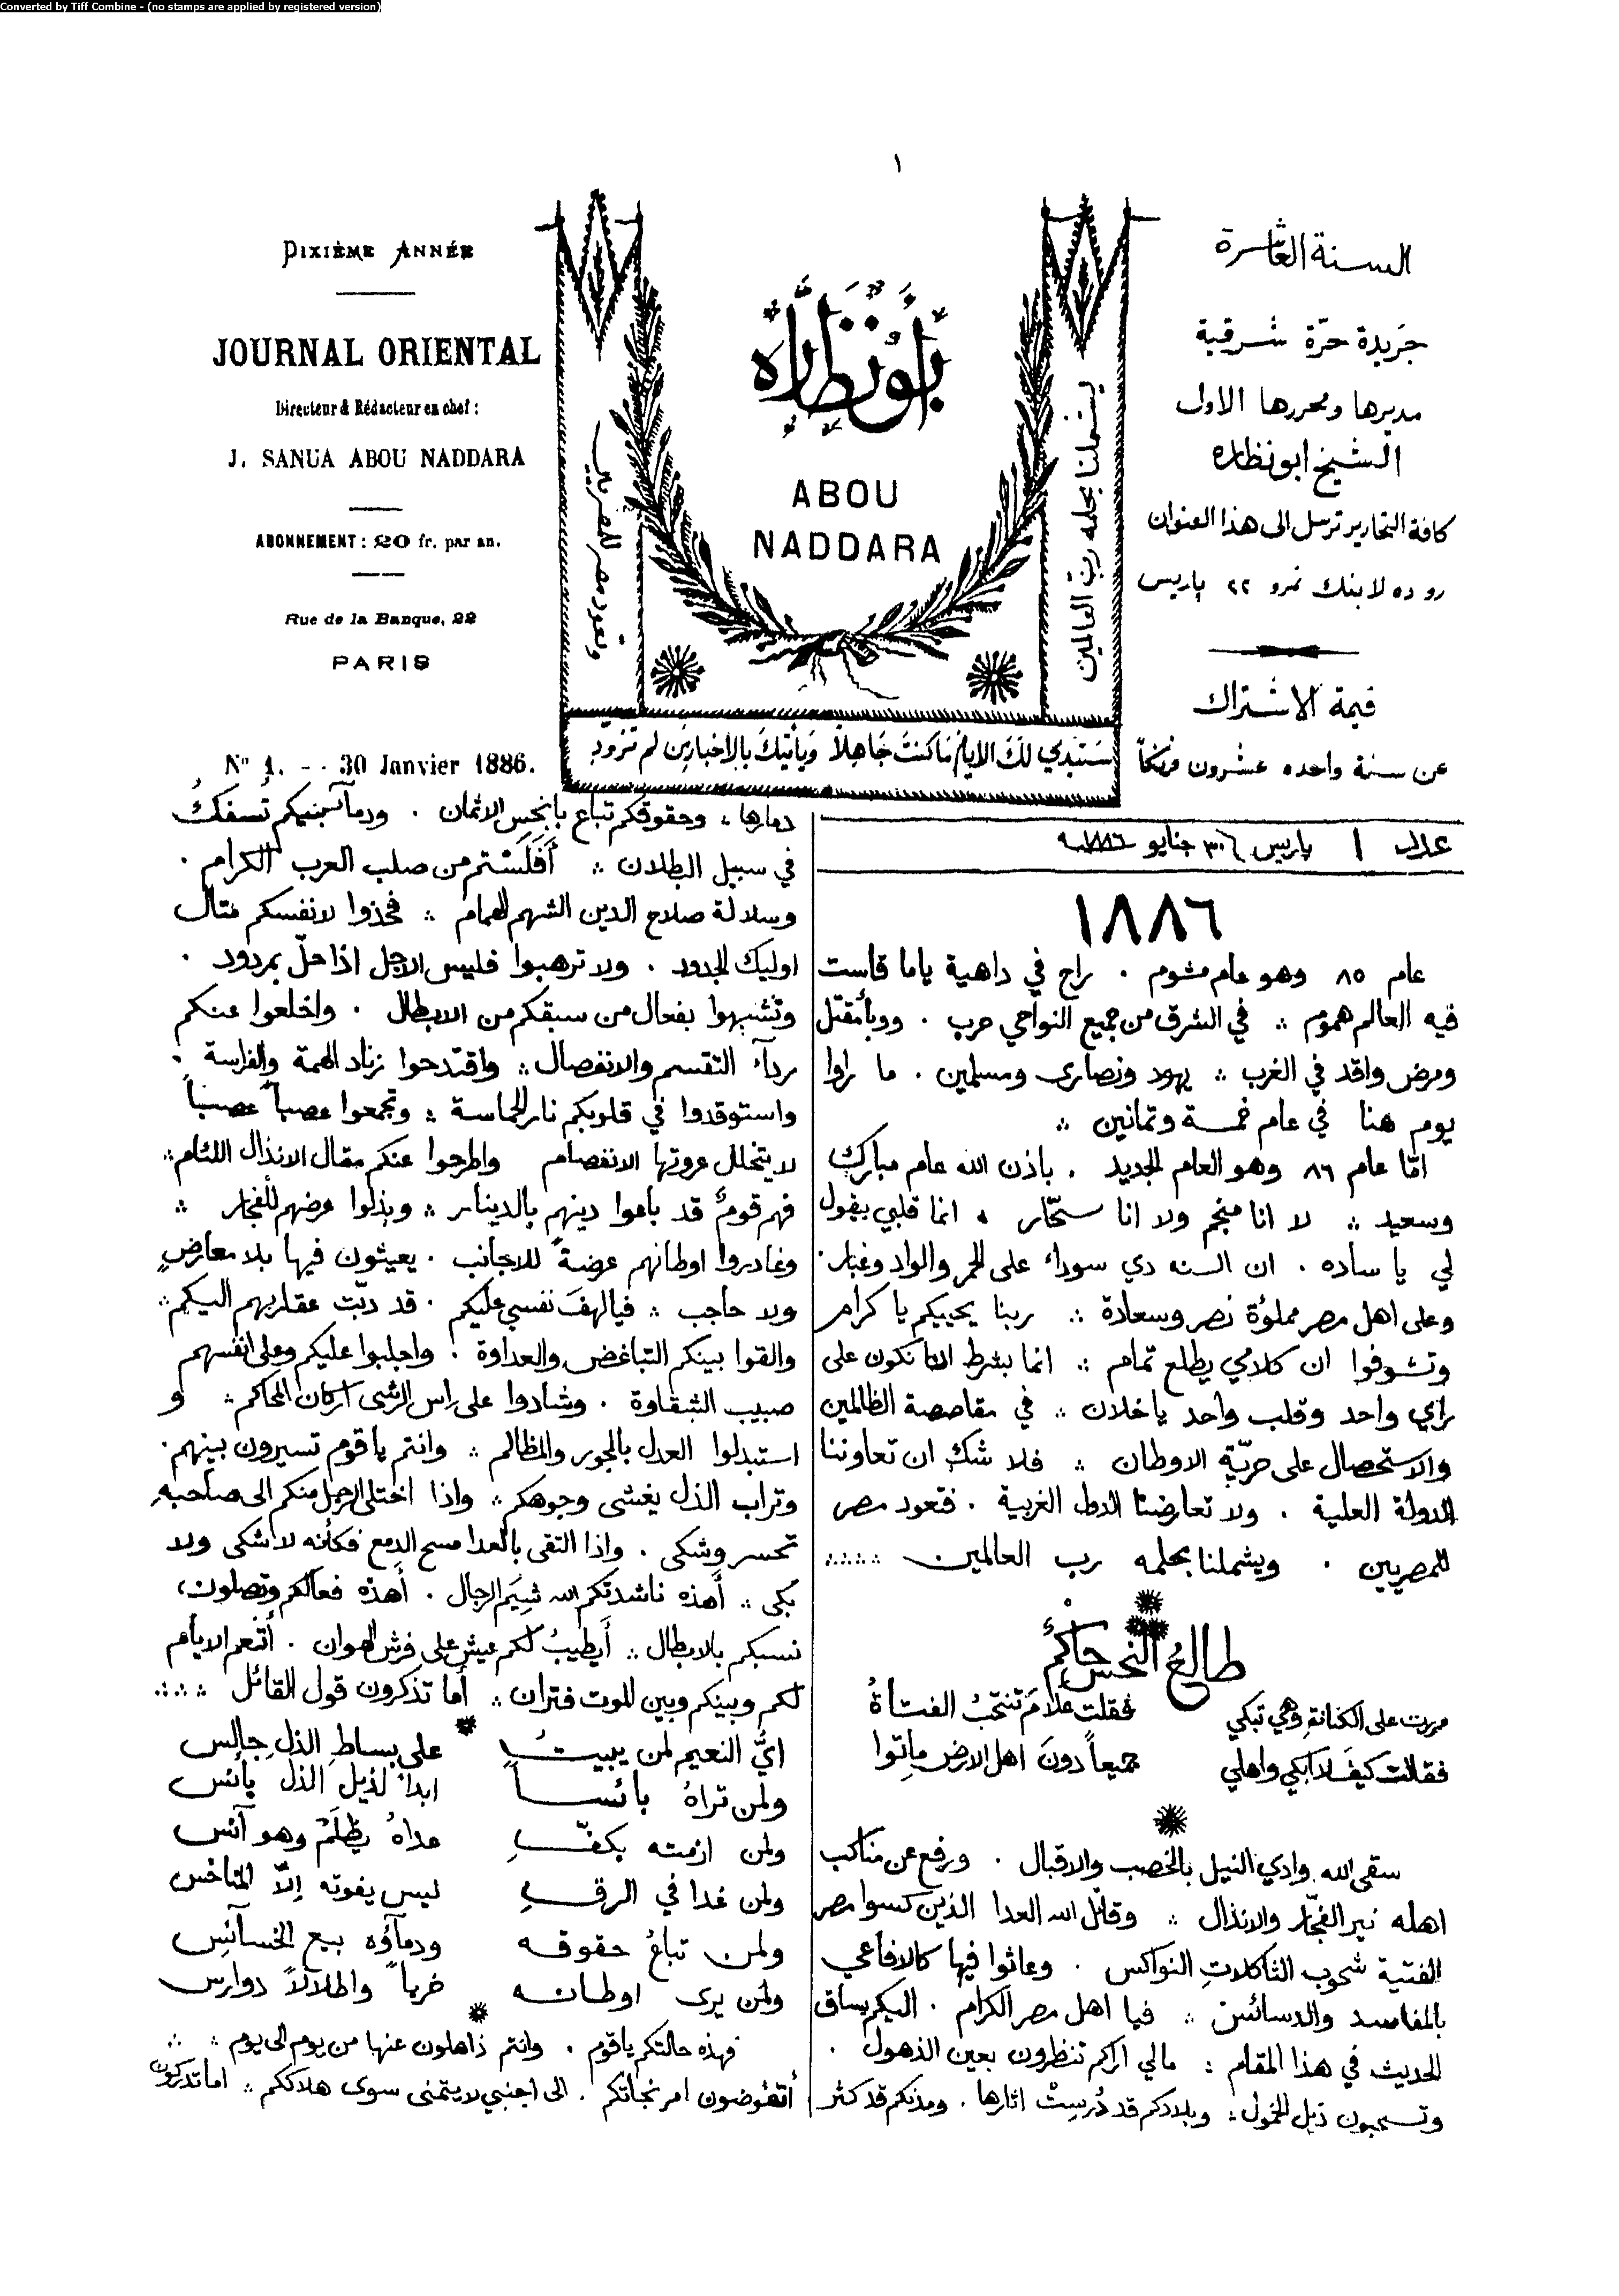 Converted by Tiff Combine - (no stamps are applied by registered version)
١
DIXIÈME ANNÉE
JOURNAL ORIENTAL
Directeur & Rédacteur en chef :
J. SANUA ABOU NADDARA
ABONNEMENT : 20 fr. par an.
Rue de la Banque, 22
PARIS
N° 1. -- 30 Janvier 1886.
أبو نظارة
ABOU
NADDARA
يشملنا بحلمه رب العالمين
وتعود مصر للمصريين
ستبدي لك الايام ما كنت جاهلا وياتيك بالاخبار من لم تزود
السنة العاشرة
جريدة حرّة شرقية
مديرها ومحررها الاول
الشيخ ابو نظاره
كافة التحارير ترسل الى هذا العنوان
رو ده لا بنك نمرو ٢٢ پاريس
قيمة الاشتراك
عن سنة واحده عشرون فرنكاً
عدد ١ پاريس ٣٠ جنايو ١٨٨٦
١٨٨٦
عام ٨٥ وهو عام مشوم . راح في داهية ياما قاست
فيه العالم هموم ؞ في الشرق من جميع النواحي حرب . ووبأ مقتل
ومرض واقد في الغرب ؞ يهود ونصارى ومسلمين . ما راوا
يوم هنا في عام خمسة وتمانين ؞
امّا عام ٨٦ وهو العام الجديد . باذن الله عام مبارك
وسعيد ؞ لا انا منجم ولا انا سحّار . انما قلبي يقول
لي يا ساده . ان السنه دي سوداء على الحمر والواد وغبار .
وعلى اهل مصر مملوءة نصر وسعادة ؞ ربنا يحييكم يا كرام
وتشوفوا ان كلامي يطلع تمام ؞ انما بشرط اننا نكون على
راي واحد وقلب واحد يا خلان ؞ في مقاصصة الظالمين
والاستحصال على حريّة الاوطان ؞ فلا شك ان تعاوننا
الدولة العلية . ولا تعارضنا الدول الغربية . فتعود مصر
للمصريين . ويشملنا بحلمه رب العالمين ؞؞
طالع النحس حاكم
مررت على الكنانة وهي تبكي فقلت علامَ تنتحبُ الفتاةُ
فقالت كيف لا ابكي واهلي جميعاً دونَ اهل الارض ماتوا
سقى الله وادي النيل بالخصب والاقبال . ورفع عن مناكب
اهله نير الفجّار والانذال ؞ وقاتل الله العدا الذين كسوا مصر
الفتية شحوب الثاكلات النواكس . وعاثوا فيها كالافاعي
بالمفاسد والدسائس ؞ فيا اهل مصر الكرام . اليكم يساق
الحديث في هذا المقام ؞ مالي اراكم تنظرون بعين الذهول .
وتسحبون ذيل الخمول ؞ وبلادكم قد دُرست اثارها . ومدنكم قد كثر
دمارها ؞ وحقوقكم تباع بابخس الاثمان . ودمآ بنيكم تُسفك
في سبيل البطلان ؞ أفلستم من صلب العرب الكرام .
وسلالة صلاح الدين الشهم الهمام ؞ فخذوا لانفسكم مثال
اوليك الجدود . ولا ترهبوا فليس الاجل اذا حلّ بمردود .
وتشبهوا بفعال من سبقكم من الابطال . واخلعوا عنكم
ردآء التقسم والانفصال ؞ واقتدحوا زناد الهمة والفراسة .
واستوقدوا في قلوبكم نار الحماسة ؞ وتجمعوا عصباً عصباً
لا يتخلل عروتها الانفصام واطرحوا عنكم مقال الانذال اللئام ؞
فهم قومٌ قد باعوا دينهم بالدينار ؞ وبذلوا عرضهم للفجار ؞
وغادروا اوطانهم عرضة للاجانب . يعيثون فيها بلا معارضٍ
ولا حاجب ؞ فيالهفَ نفسي عليكم . قد دبّت عقاربهم اليكم ؞
والقوا بينكم التباغض والعداوة . واجلبوا عليكم وعلى انفسهم
صبيب الشقاوة . وشادوا على راس الرشى اركان المحاكم ؞ و
استبدلوا العدل بالجور والمظالم ؞ وانتم يا قوم تسيرون بينهم .
وتراب الذل يغشى وجوهكم ؞ واذا اختلى الرجل منكم الى صاحبه
تحسر وشكى . واذا التقى بالعدا مسح الدمع فكأنه لا شكى ولا
بكى ؞ أهذه ناشدتكم الله شيَم الرجال . أهذه فعالكم وتصلون
نسبكم بالابطال ؞ أيطيبُ لكم عيش على فرش الهوان . أتنعم الايام
لكم وبينكم وبين الموت فتران ؞ أما تذكرون قول القائل ؞؞
ايُّ النعيم لمن يبيتُ على بساطِ الذل جالس
ولمن تراهُ بائساً ابداً لذيل الذل بائس
ولمن ازمته بكفّ عداهُ يظلم وهو آنس
ولمن غدا في الرق ليس يفوته إلاّ المناخس
ولمن تباعُ حقوقه ودمآؤه بيع الخسآئس
ولمن يرى اوطانه خرباً واطلالاً دوارس
فهذه حالتكم يا قوم . وانتم ذاهلون عنها من يوم الى يوم ؞
أتفوضون امر نجاتكم . الى اجنبي لا يتمنى سوى هلاككم ؞ اما تدركون